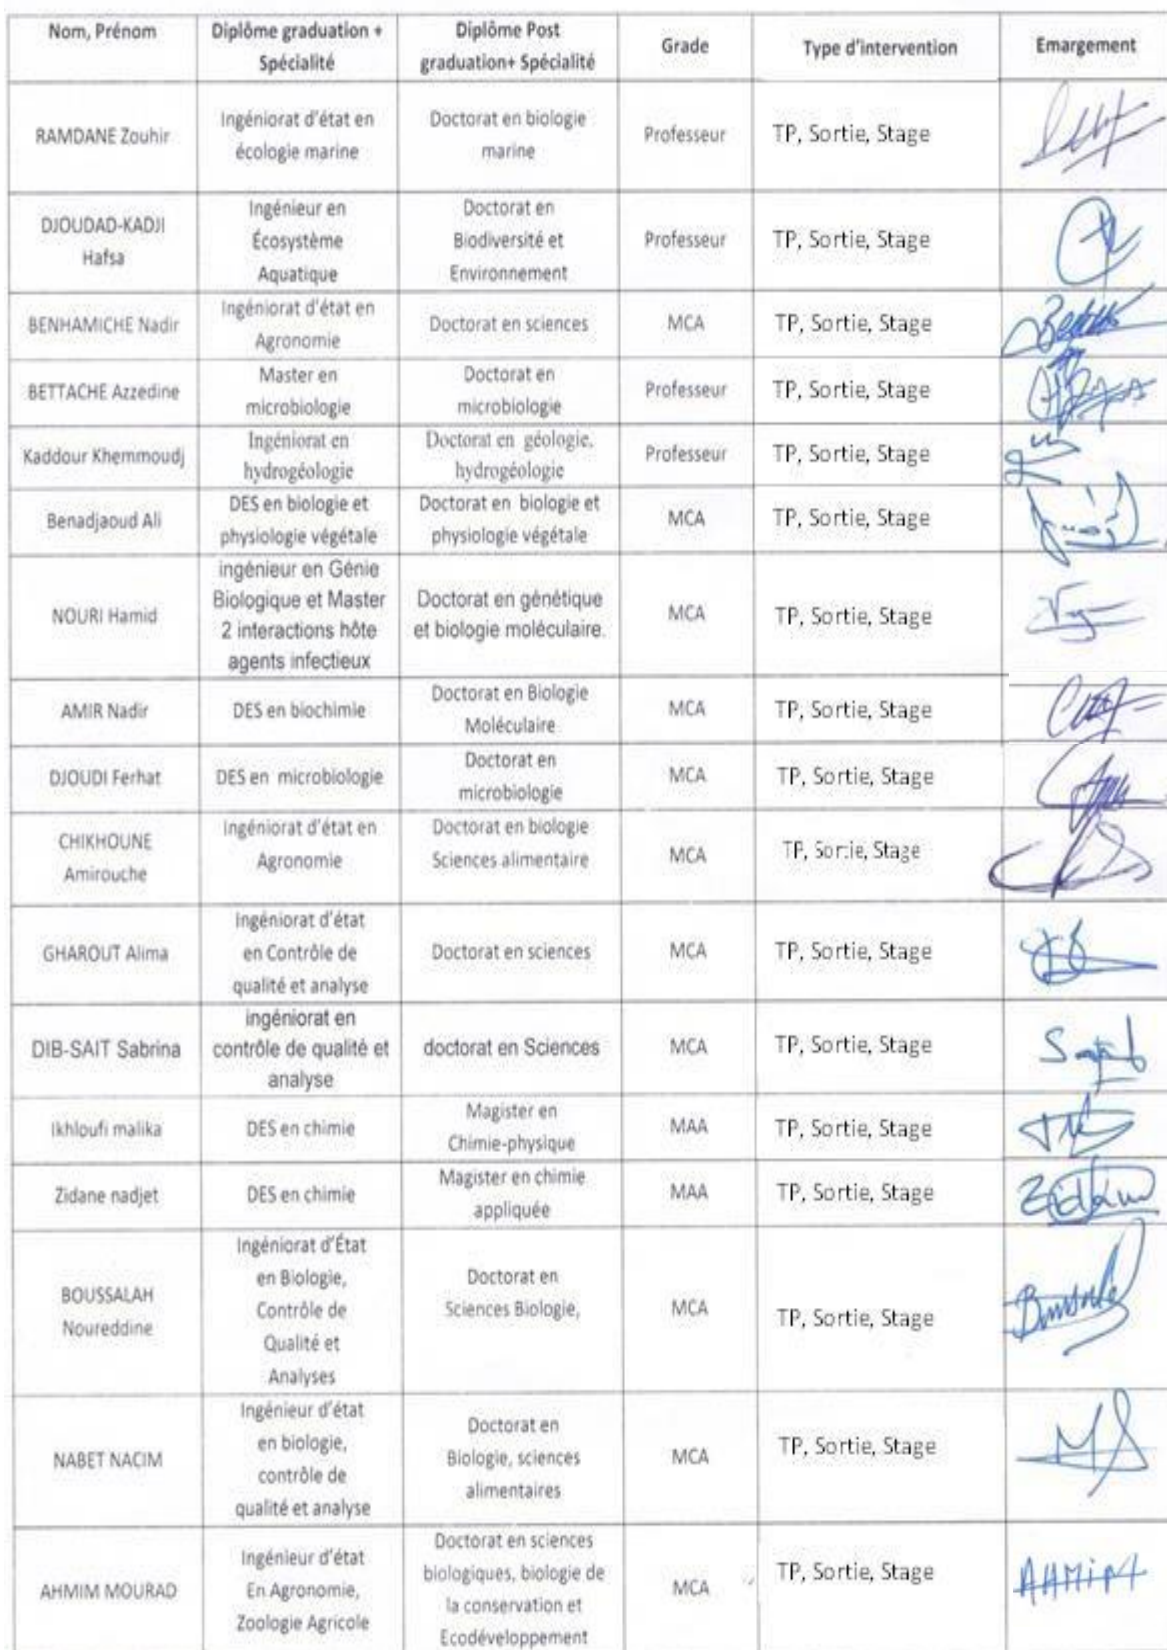 Nom, Prénom
Diplôme graduation +
Spécialité
Diplôme Post
graduation+ Spécialité
Grade
Type d'intervention
Emargement
RAMDANE Zouhir
Ingéniorat d'état en
écologie marine
Doctorat en biologie
marine
Professeur
TP, Sortie, Stage
DJOUDAD-KADJI
Hafsa
Ingénieur en
Écosystème
Aquatique
Doctorat en
Biodiversité et
Environnement
Professeur
TP, Sortie, Stage
BENHAMICHE Nadir
Ingéniorat d'état en
Agronomie
Doctorat en sciences
MCA
TP, Sortie, Stage
BETTACHE Azzedine
Master en
microbiologie
Doctorat en
microbiologie
Professeur
TP, Sortie, Stage
Kaddour Khemmoudj
Ingéniorat en
hydrogéologie
Doctorat en géologie,
hydrogéologie
Professeur
TP, Sortie, Stage
Benadjaoud Ali
DES en biologie et
physiologie végétale
Doctorat en biologie et
physiologie végétale
MCA
TP, Sortie, Stage
NOURI Hamid
ingénieur en Génie
Biologique et Master
2 interactions hôte
agents infectieux
Doctorat en génétique
et biologie moléculaire.
MCA
TP, Sortie, Stage
AMIR Nadir
DES en biochimie
Doctorat en Biologie
Moléculaire
MCA
TP, Sortie, Stage
DJOUDI Ferhat
DES en microbiologie
Doctorat en
microbiologie
MCA
TP, Sortie, Stage
CHIKHOUNE
Amirouche
Ingéniorat d'état en
Agronomie
Doctorat en biologie
Sciences alimentaire
MCA
TP, Sortie, Stage
GHAROUT Alima
Ingéniorat d'état
en Contrôle de
qualité et analyse
Doctorat en sciences
MCA
TP, Sortie, Stage
DIB-SAIT Sabrina
ingéniorat en
contrôle de qualité et
analyse
doctorat en Sciences
MCA
TP, Sortie, Stage
Ikhloufi malika
DES en chimie
Magister en
Chimie-physique
MAA
TP, Sortie, Stage
Zidane nadjet
DES en chimie
Magister en chimie
appliquée
MAA
TP, Sortie, Stage
BOUSSALAH
Noureddine
Ingéniorat d'État
en Biologie,
Contrôle de
Qualité et
Analyses
Doctorat en
Sciences Biologie,
MCA
TP, Sortie, Stage
NABET NACIM
Ingénieur d'état
en biologie,
contrôle de
qualité et analyse
Doctorat en
Biologie, sciences
alimentaires
MCA
TP, Sortie, Stage
AHMIM MOURAD
Ingénieur d'état
En Agronomie,
Zoologie Agricole
Doctorat en sciences
biologiques, biologie de
la conservation et
Ecodéveloppement
MCA
TP, Sortie, Stage